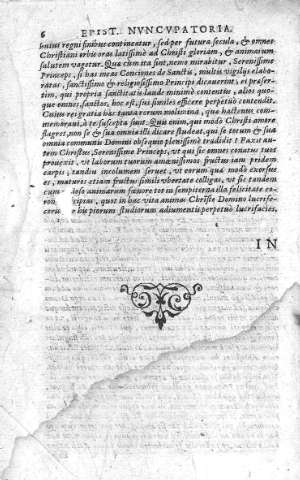 6 EPIST. NVNCVPATORIA.
senius regni finibus contineatur, sed per futura secula, & omnes
Christiani orbis oras latissimè ad Christi gloriam, & animarum
salutem vagetur. Quæ cum ita sint, nemo mirabitur, Serenissime
Princeps, si has meas Conciones de Sanctis, multis vigilijs elabo-
ratas, sanctissimo & religiosissimo Principi dicauerim, ei præser-
tim, qui propria sanctitatis laude minimè contentus, alios quo-
que omnes, sanctos, hoc est, sui similes efficere perpetuò contendit.
Cuius rei gratia hæc pauca rerum
memorauit, à te suscepta sunt. Quis enim, quo modo Christi amore
flagret, non se & sua omnia illi dicare studeat, qui se totum & sua
omnia communis Domini obsequio plenissimè tradidit? Paxit au-
tem Christus, Serenissime Princeps, vt qui sic omnes conatus tuos
prouexit, vt laborum tuorum amænissimos fructus iam pridem
carpis, tandiu incolumem seruet, vt eorum quæ modò exorsus
es, maturos etiam fructus simili vbertate colligas, vt sic tandem
cum animarum fænore tot in sempiterna illa felicitate co-
ron cipias, quot in hac vita animas Christo Domino lucrife-
ceris bis piorum studiorum adiumentis perpetuò lucrifacies.
IN